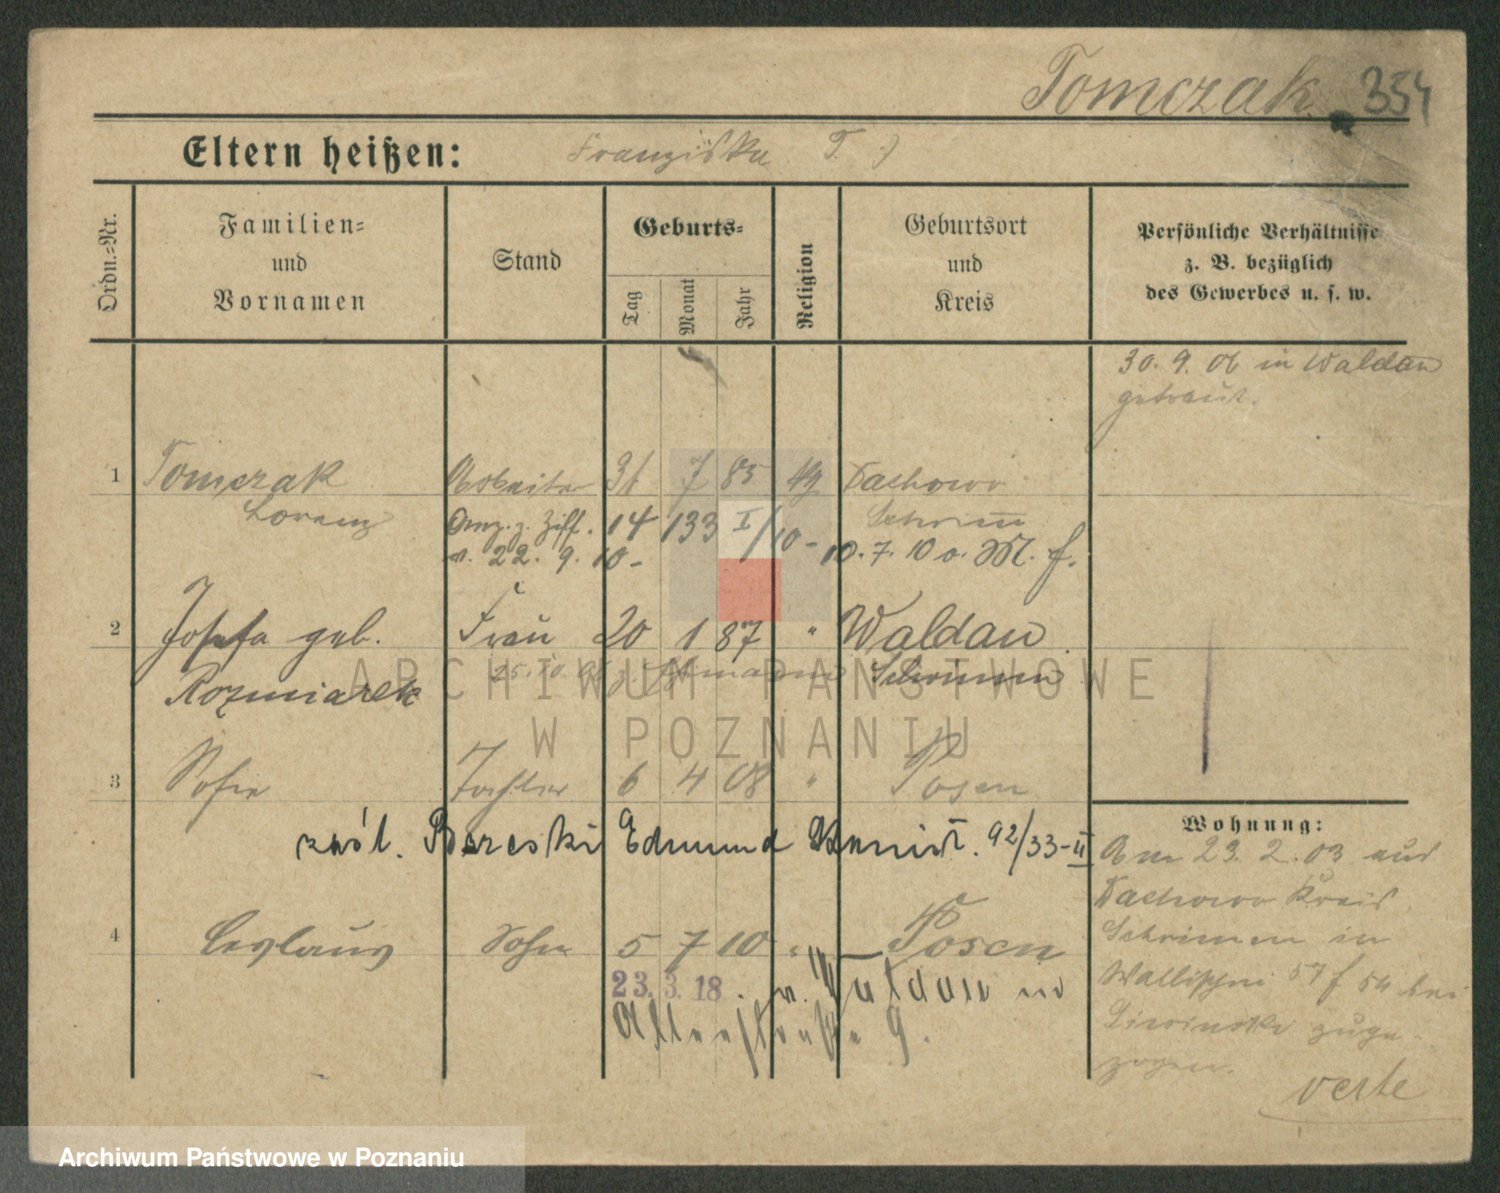 Tomczak 354
Eltern heißen: Franziska T.
Ordn.-Nr.
Familien-
und
Vornamen
Stand
Geburts-
Tag
Monat
Jahr
Religion
Geburtsort
und
Kreis
Persönliche Verhältnisse
z. B. bezüglich
des Gewerbes u. s. w.
30. 9. 06 in Waldau
getraut.
1 Tomczak Arbeiter 31 7 85 Dachowo
Lorenz Schrimm
14 133 I/10
v. 22. 9. 10 - 10. 7. 10
2 Josefa geb. Frau 20 1 87 " Waldau
Rozmiarek Schrimm
ARCHIWUM PAŃSTWOWE
W POZNANIU
3 Sofie Tochter 6 4 08 " Posen
Edmund 92/33-II
Wohnung:
Am 23. 2. 03 aus
Dachowo Kreis
Schrimm in
Wallischei 57 f 54 bei
zuge-
zogen.
verte
4 Ceslaus Sohn 5 7 10 " Posen
23. 3. 18. n. Waldau
9.
Archiwum Państwowe w Poznaniu